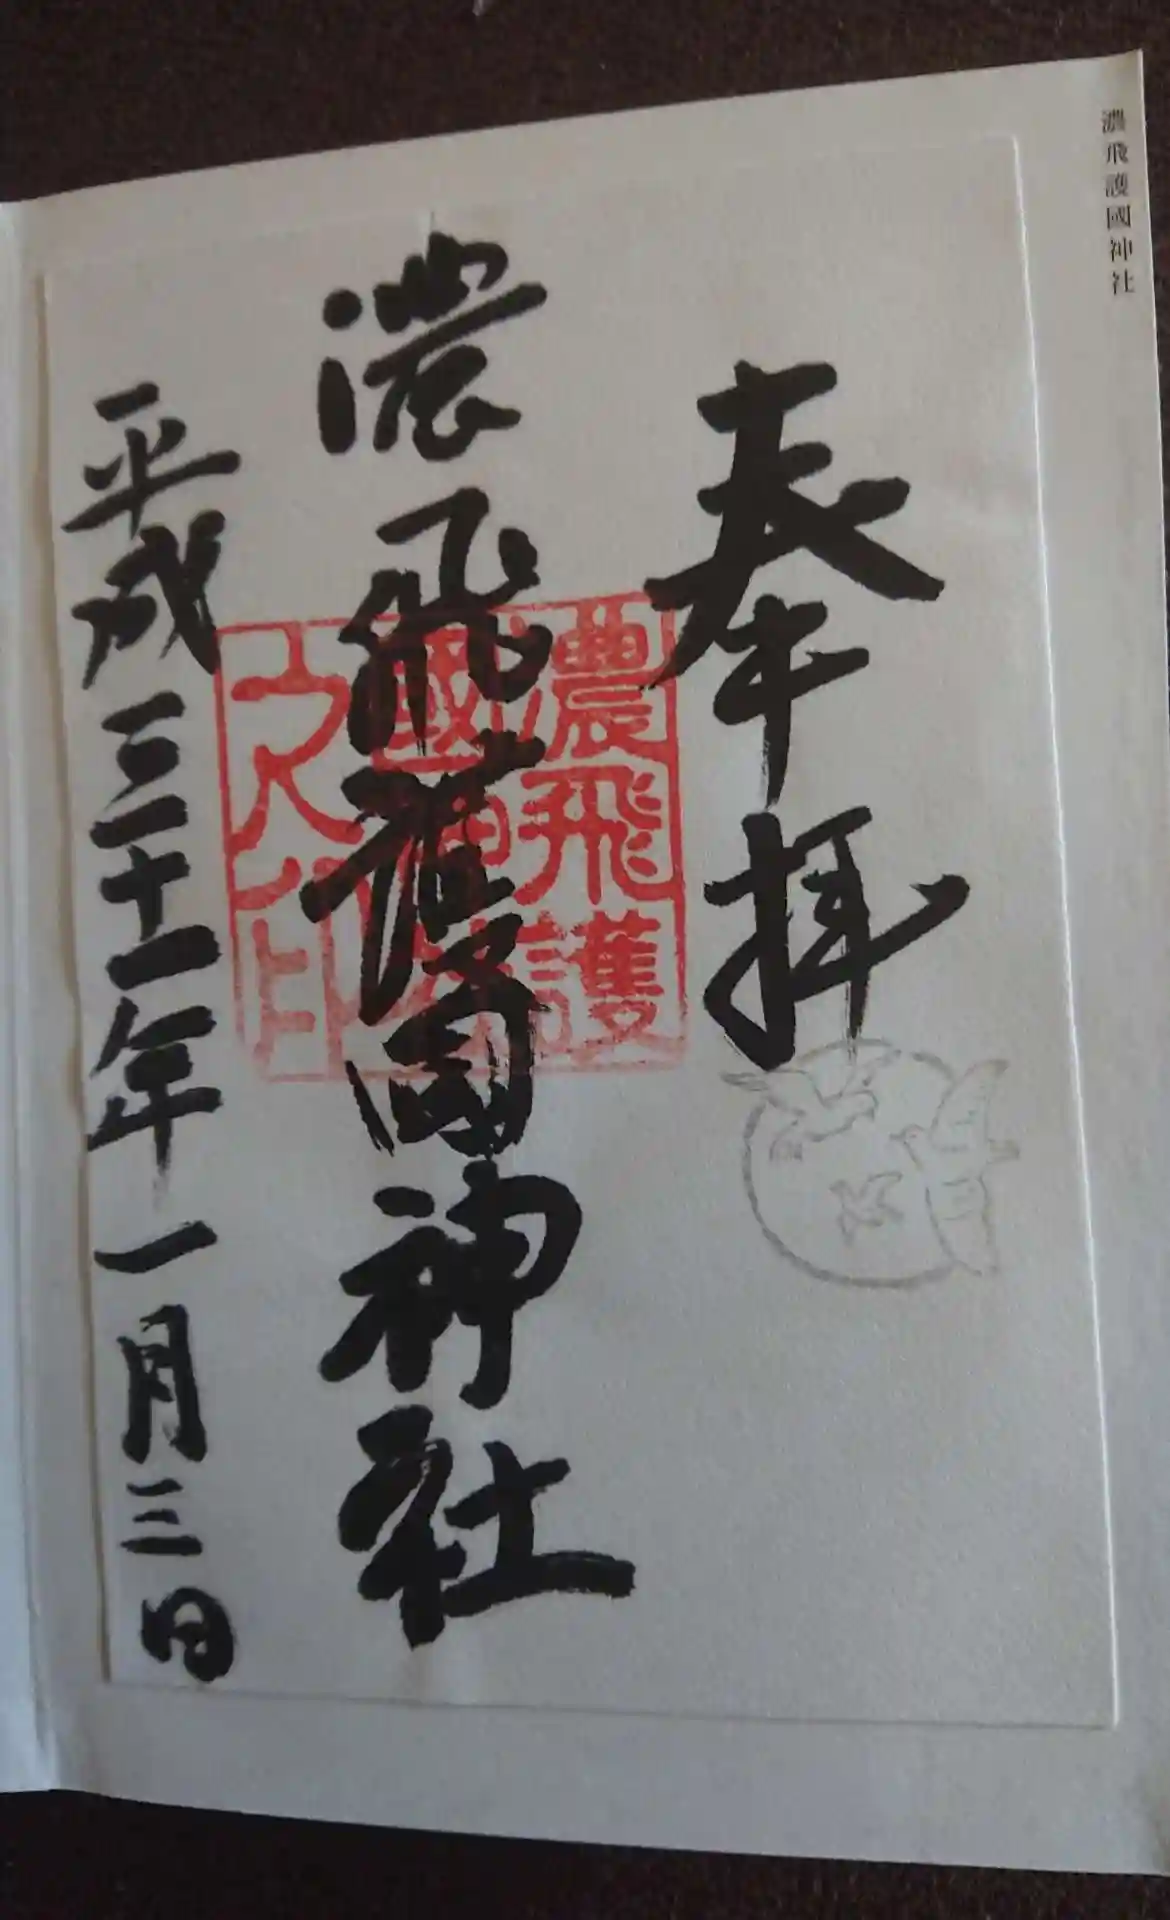 濃飛護國神社
奉拝
濃飛護國神社
濃飛護
國神社
之印
平成三十一年一月三日